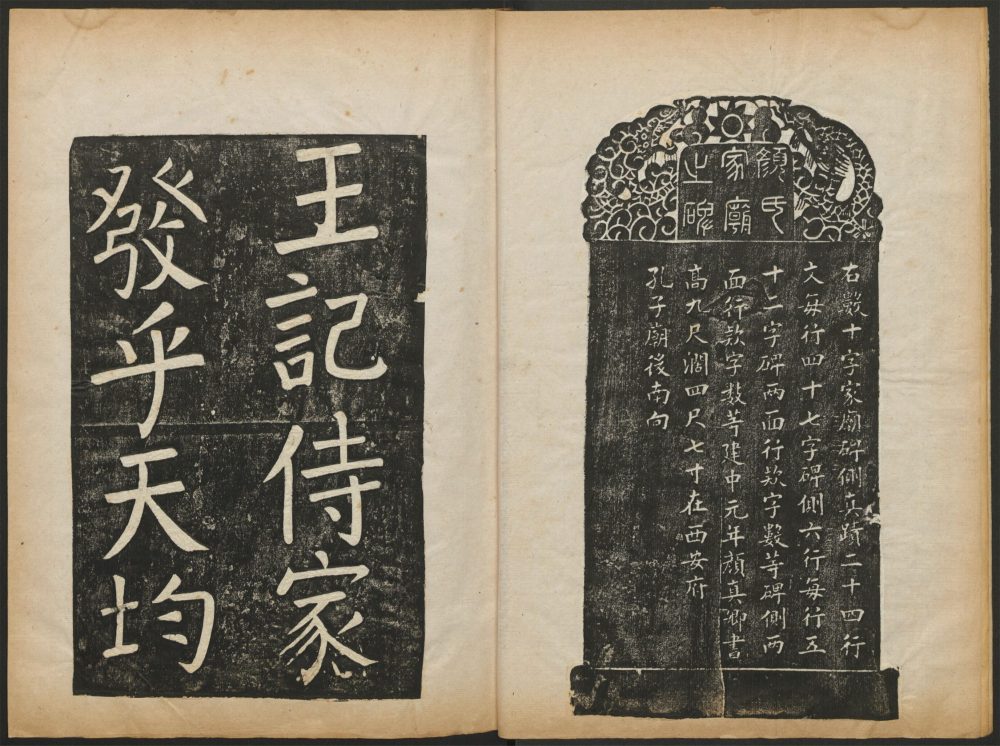 顏氏
家廟
之碑
右數十字家廟碑側真蹟二十四行
文每行四十七字碑側六行每行五
十二字碑兩面行款字數等碑側兩
面行款字數等建中元年顏真卿書
高九尺濶四尺七寸在西安府
孔子廟後南向
王記侍家
發乎天均